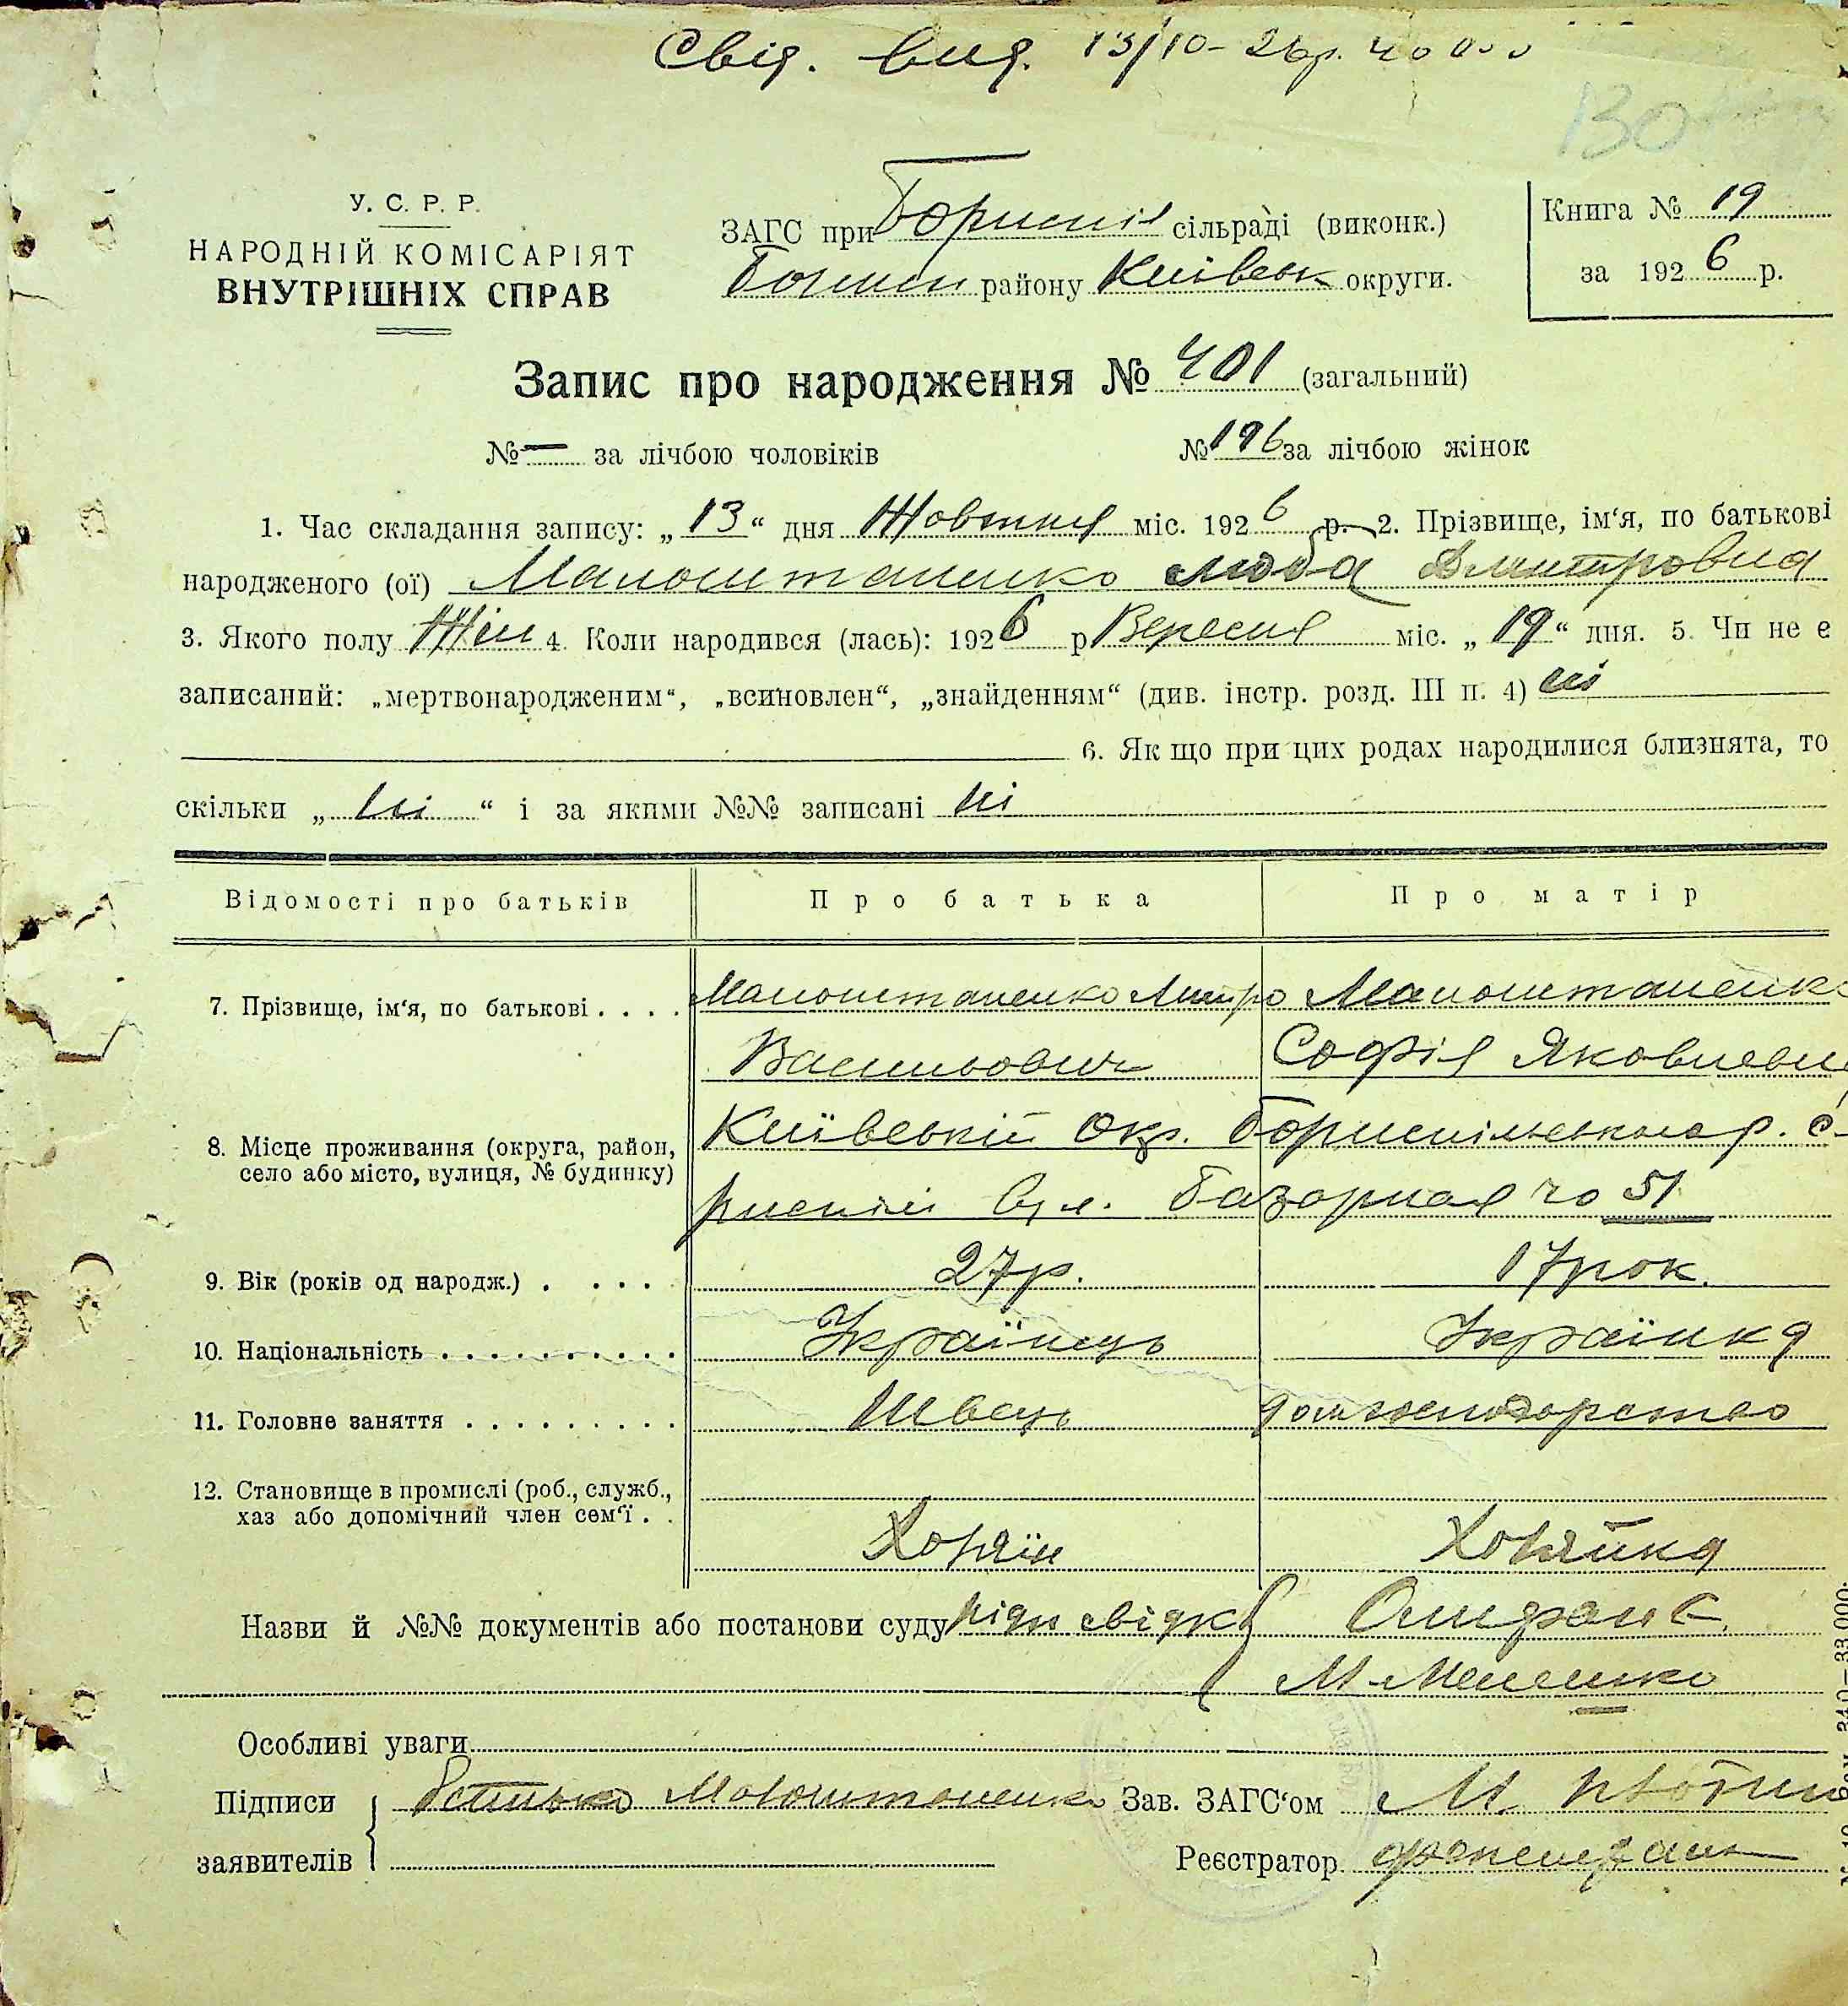 Свід. вид. 13/10-26р.
130
У. С. Р. Р.
НАРОДНІЙ КОМІСАРІЯТ
ВНУТРІШНІХ СПРАВ
ЗАГС при Бориспіл сільраді (виконк.)
району Київськ округи.
Книга № 19
за 1926 р.
Запис про народження № 401 (загальний)
№ — за лічбою чоловіків № 196 за лічбою жінок
1. Час складання запису: „13“ дня Жовтня міс. 1926 р. 2. Прізвище, ім‘я, по батькові
народженого (ої) Малоштаненко Люба Дмитровна
3. Якого полу Жін 4. Коли народився (лась): 1926 р Вересня міс. „19“ дня. 5. Чи не є
записаний: „мертвонародженим“, „всиновлен“, „знайденням“ (див. інстр. розд. III п. 4) ні
6. Як що при цих родах народилися близнята, то
скільки „ні“ і за якими №№ записані ні
Відомості про батьків Про батька Про матір
7. Прізвище, ім‘я, по батькові . . . . Малоштаненко Дмитро Малоштаненко
Васильович Софія Яковлевна
8. Місце проживання (округа, район, Київській Окр. Бориспільського р. с.
село або місто, вулиця, № будинку) Вул. Базарная № 51
9. Вік (років од народж.) . . . . 27р. 17 рок.
10. Національність . . . . . . . . . . Українець Українка
11. Головне заняття . . . . . . . . . Швець домхозподарство
12. Становище в промислі (роб., служб.,
хаз або допомічний член сем‘ї . . Хозяїн Хозяйка
Назви й №№ документів або постанови суду
Особливі уваги
Підписи Малоштаненко Зав. ЗАГС‘ом
заявителів Реєстратор